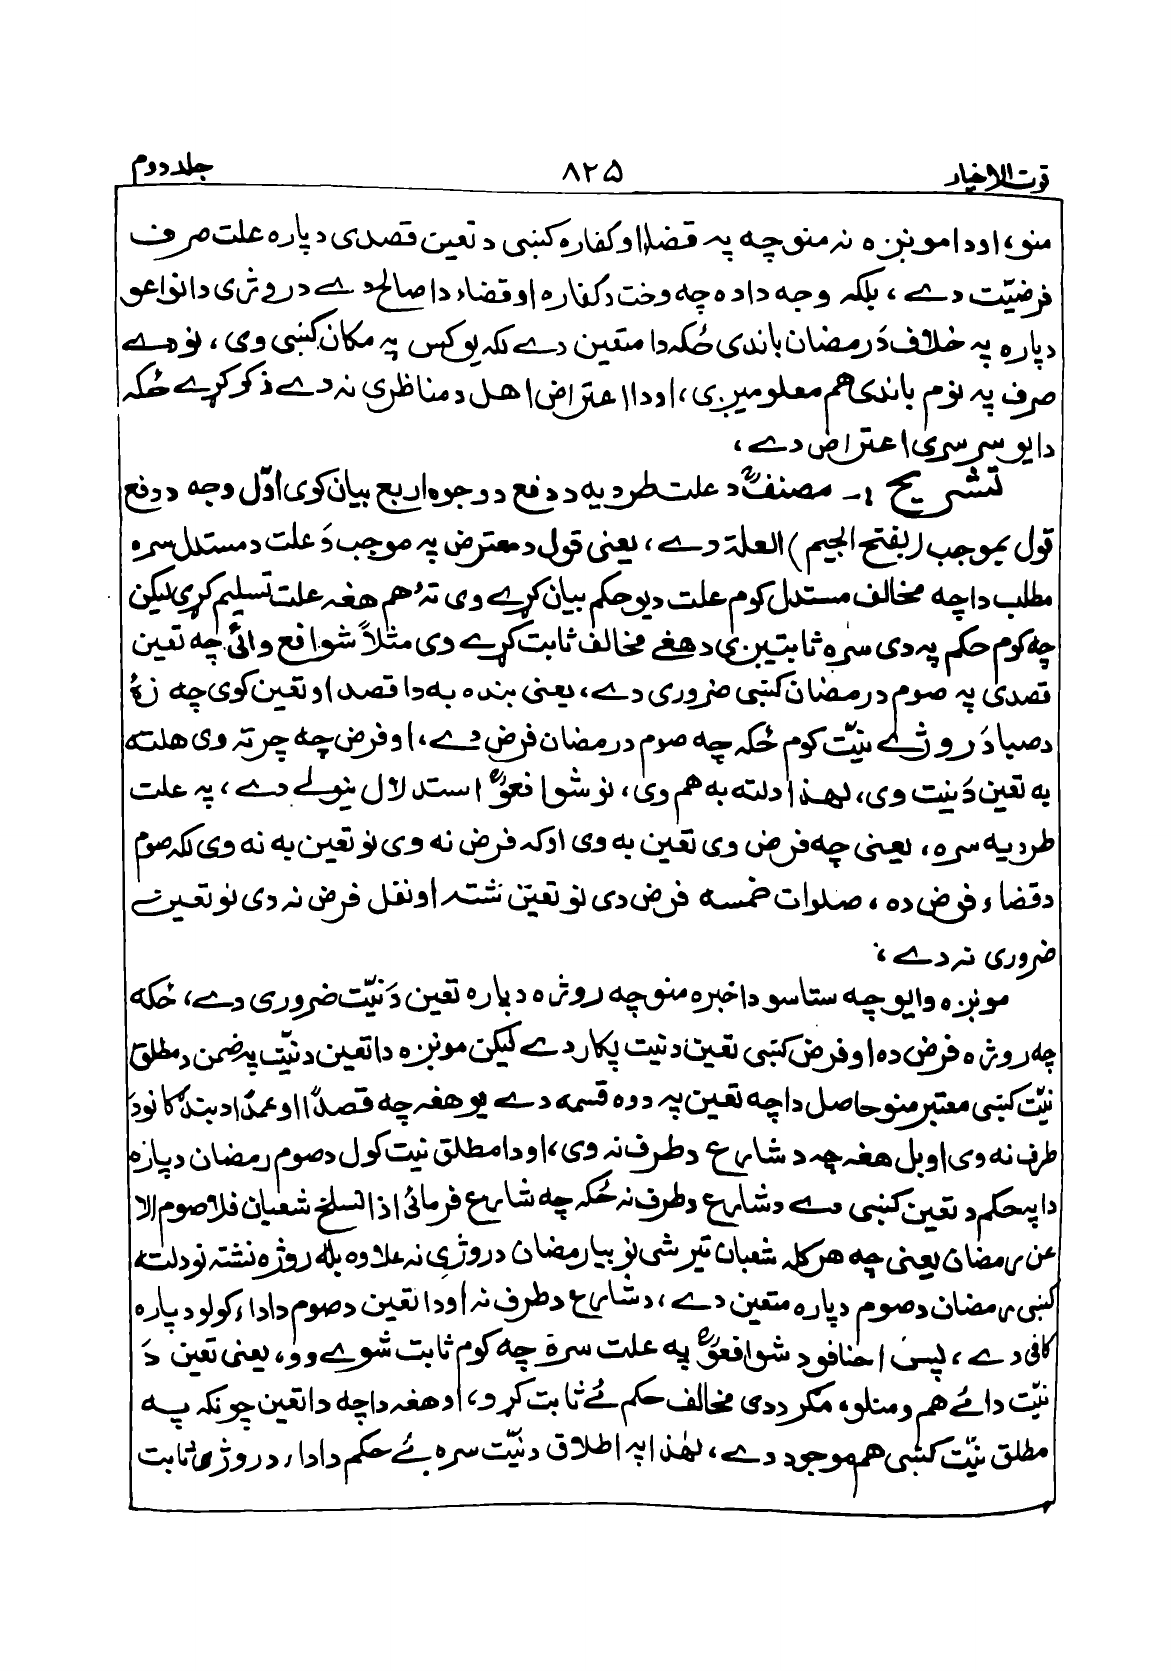 قوت الاخیار ۸۲۵ جلد دوم
منو، او دا مونږه نه منو چه په قضاء او کفاره کښی د تعین قصدی دپاره علت صرف
فرضیّت دے ، بلکہ وجه داده چه وخت د کفاره او قضاء دا صالح دے د روژی د انواعو
دپاره په خلاف دَ رمضان باندی ځکه دا متعین دے لکہ یو کس په مکان کښی وی ، نو دے
صرف په نوم باندی هم معلومیږی ، او دا اعتراض اهل د مناظری نه دے ذکر کړے ځکه
دا یو سرسری اعتراض دے ،
تشریح :- مصنفؒ د علت طردیه د دفع د وجوه اربع بیان کوی اوّل وجه د دفع
قول بموجب (بفتح الجیم) العلة دے ، یعنی قول د معترض په موجب دَ علت د مستدل سره
مطلب دا چه مخالف مستدل کوم علت دیو حکم بیان کړے وی تهٔ هم هغه علت تسلیم کړی لیکن
چه کوم حکم په دی سره ثابتیږی د هغے مخالف ثابت کړے وی مثلاً شوافع وائی چه تعین
قصدی په صوم د رمضان کښی ضروری دے ، یعنی بنده به دا قصد او تعین کوی چه زهٔ
د صبا دَ روژے نیّت کوم ځکه چه صوم د رمضان فرض دے ، او فرض چه چرته وی هلته
به تعین دَ نیت وی ، لهذا دلته به هم وی ، نو شوافعوؒ استدلال نیولے دے ، په علت
طردیه سره ، یعنی چه فرض وی تعین به وی او که فرض نه وی نو تعین به نه وی لکه صوم
د قضاء فرض ده ، صلوات خمسه فرض دی نو تعین شته او نفل فرض نه دی نو تعین ئے
ضروری نه دے ،
مونږه وایو چه ستاسو دا خبره منو چه روژه دپاره تعین دَ نیّت ضروری دے ، ځکه
چه روژه فرض ده او فرض کښی تعین د نیت پکار دے لیکن مونږه دا تعین د نیّت په ضمن د مطلق
نیّت کښی معتبر منو حاصل دا چه تعین په دوه قسمه دے یو هغه چه قصداً او عمداً د بندګانو دَ
طرف نه وی او بل هغه چه د شارع د طرف نه وی ، او دا مطلق نیت کول د صوم رمضان دپاره
دا په حکم د تعین کښی دے د شارع د طرف نه ځکه چه شارع فرمائی اذا انسلخ شعبان فلا صوم الا
عن رمضان یعنی چه هر کله شعبان تیر شی نو بیا رمضان د روژی نه علاوه بله روژه نشته نو دلته
کښی رمضان د صوم دپاره متعین دے ، د شارع د طرف نه او دا تعین د صوم د اداء کولو دپاره
کافی دے ، پس احنافو د شوافعوؒ په علت سره چه کوم ثابت شوے وو ، یعنی تعین دَ
نیّت دا ئے هم ومنلو ، مګر د دی مخالف حکم ئے ثابت کړو ، او هغه دا چه دا تعین چونکه په
مطلق نیّت کښی هم موجود دے ، لهذا په اطلاق د نیّت سره ئے حکم د اداء د روژی ثابت